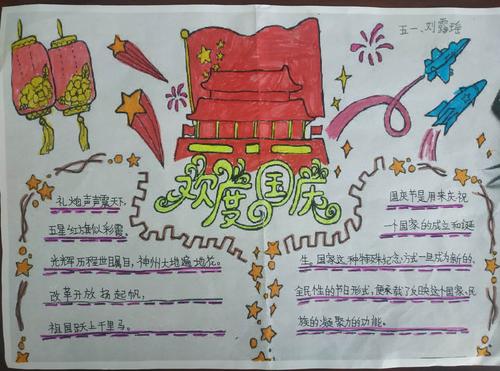 五一、刘露瑶
欢度国庆
礼炮声声震天下
五星红旗似彩霞。
光辉历程世瞩目，神州大地遍地花。
改革开放扬起帆，
祖国跃上千里马。
国庆节是用来庆祝
一个国家的成立和诞
生，国家这种特殊纪念方式一旦成为新的、
全民性的节日形式，便承载了反映这个国家、民
族的凝聚力的功能。